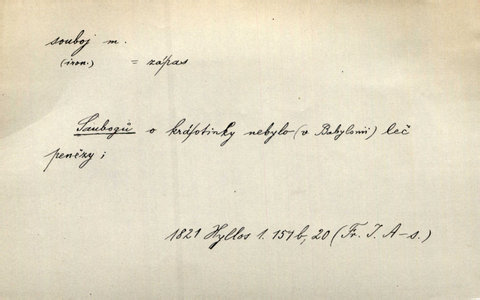 souboj m.
(iron.) = zápas
Saubogů o krásotinky nebylo (v Babyloni) leč
penězy;
1821 Hyllos 1. 151b, 20 (Fr. J. A-s.)